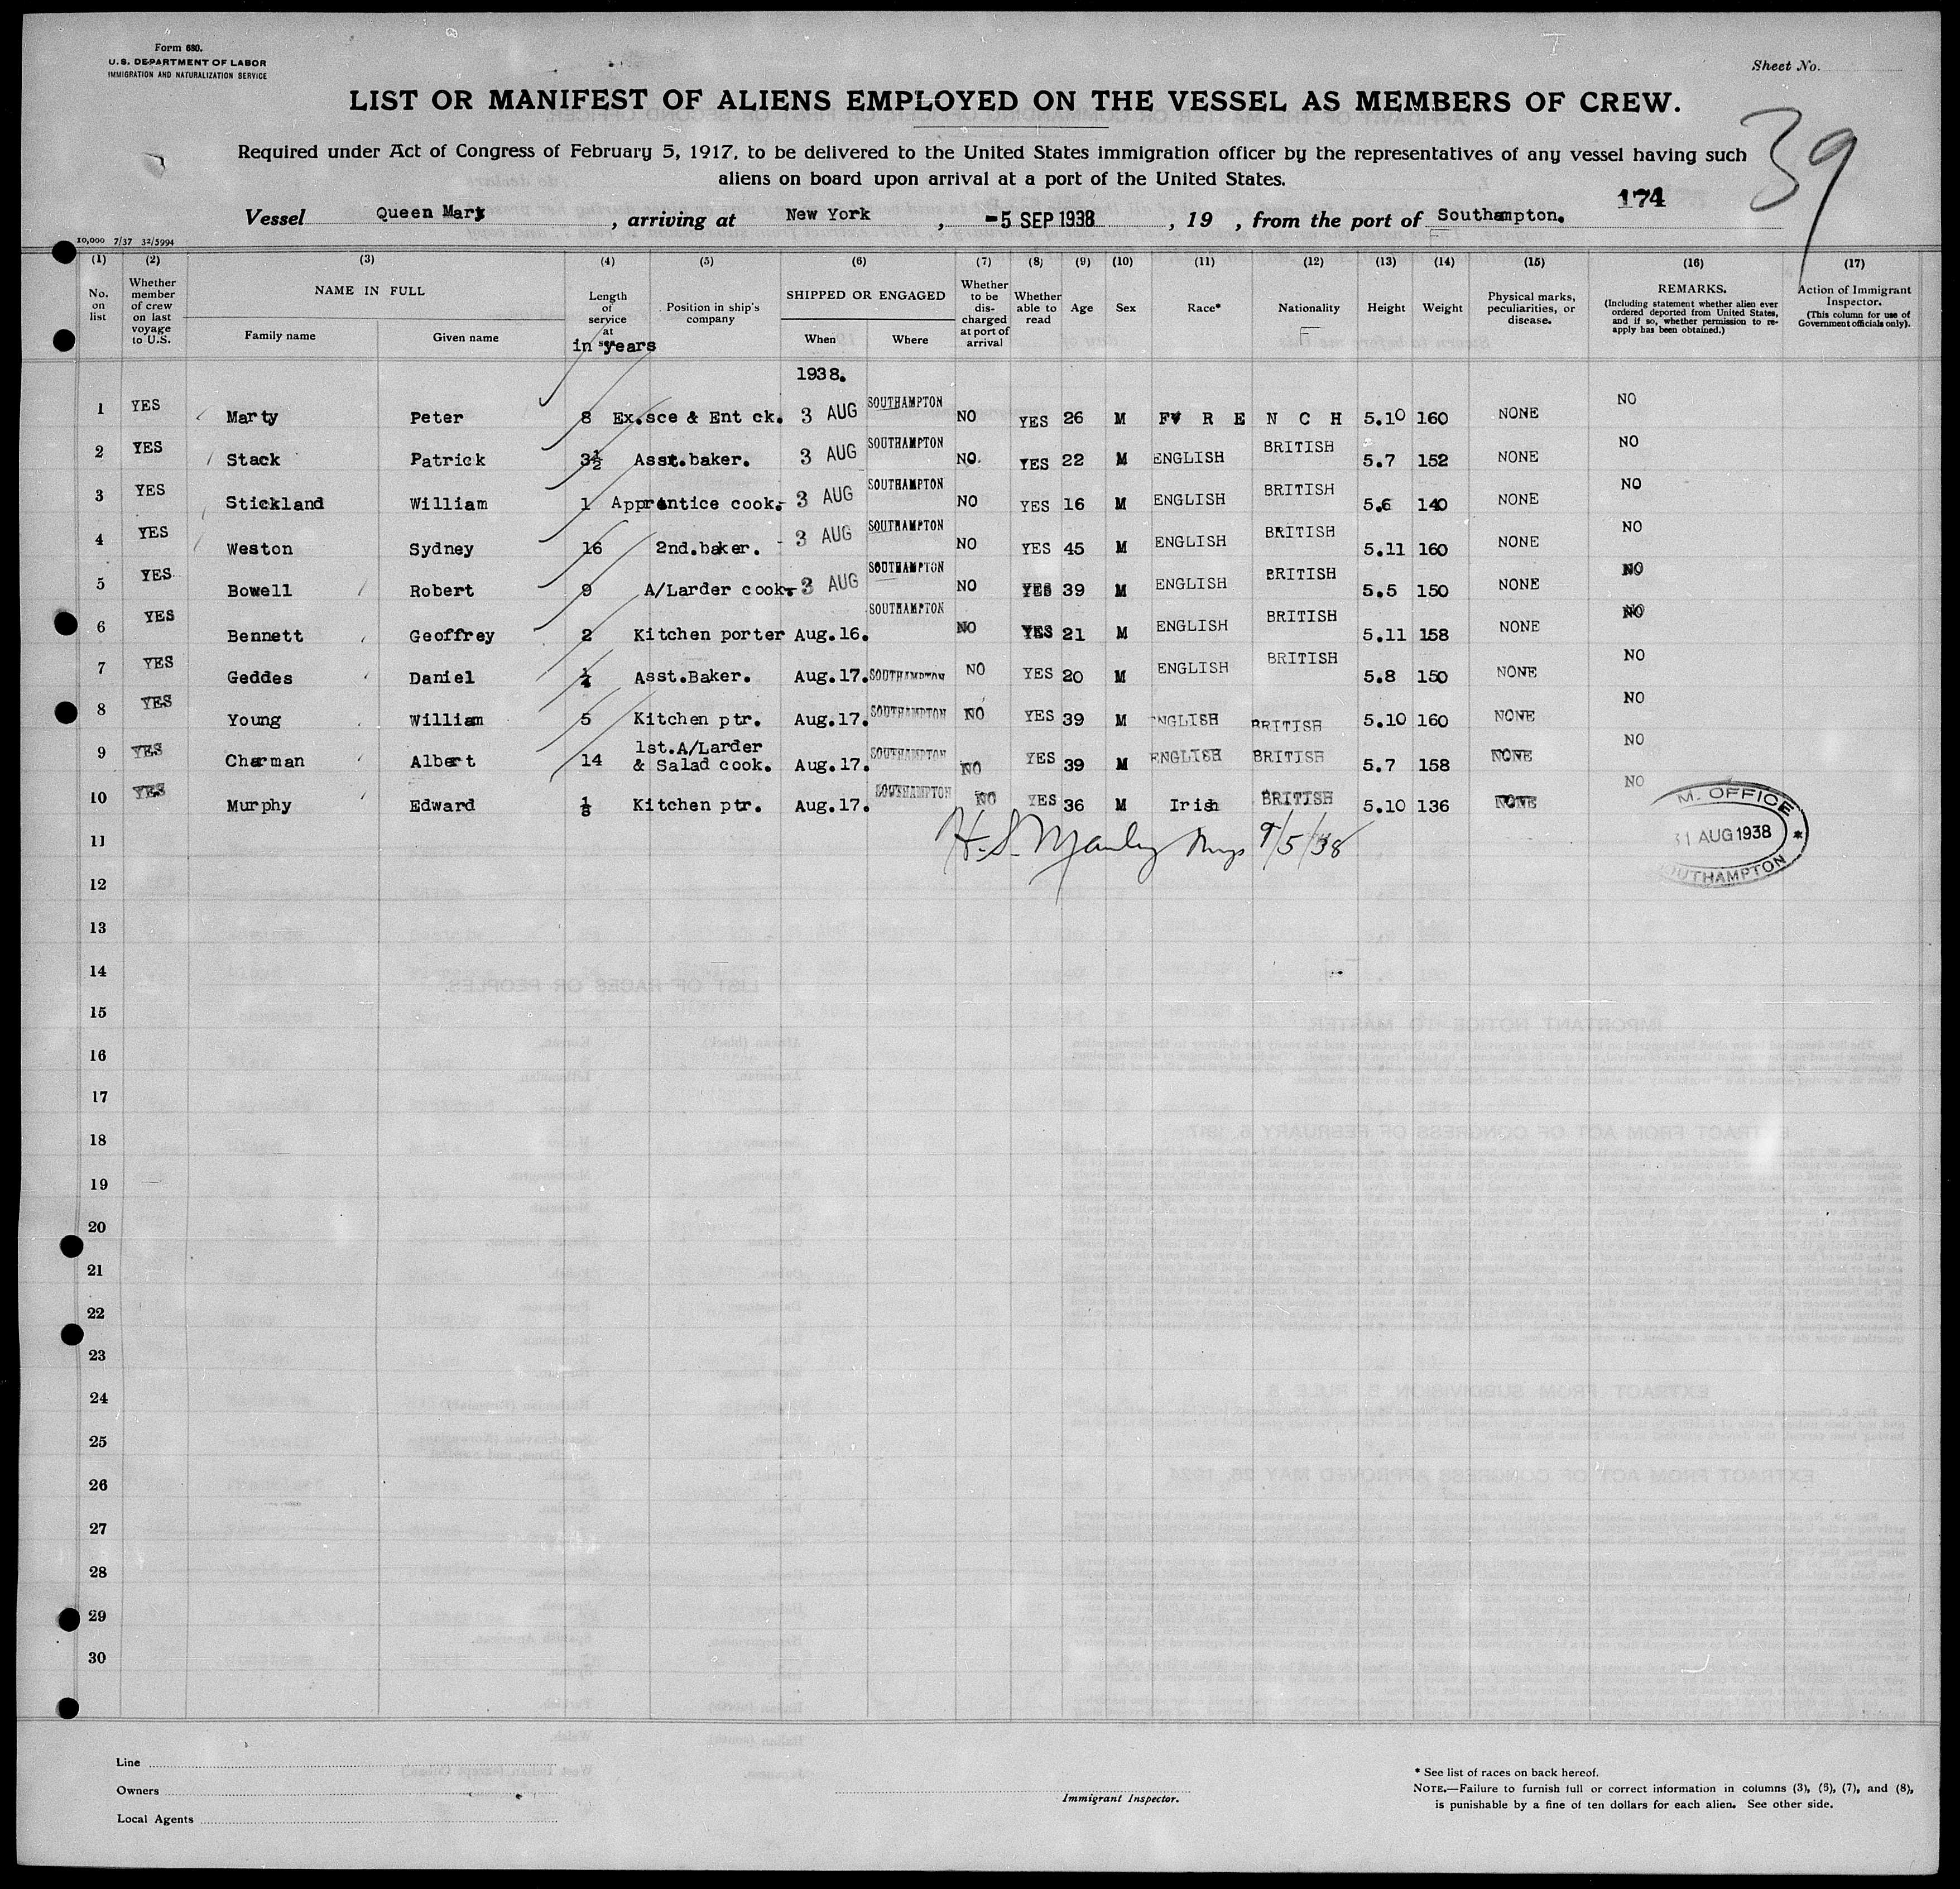 Form 680.
U.S. DEPARTMENT OF LABOR
IMMIGRATION AND NATURALIZATION SERVICE
Sheet No.
LIST OR MANIFEST OF ALIENS EMPLOYED ON THE VESSEL AS MEMBERS OF CREW.
39
Required under Act of Congress of February 5, 1917, to be delivered to the United States immigration officer by the representatives of any vessel having such
aliens on board upon arrival at a port of the United States.
174
Vessel Queen Mary, arriving at New York, -5 SEP 1938, 19 , from the port of Southampton.
10,000 7/37 32/5994
(1) (2) (3) (4) (5) (6) (7) (8) (9) (10) (11) (12) (13) (14) (15) (16) (17)
No. on list
Whether member of crew on last voyage to U.S.
NAME IN FULL
Family name Given name
Length of service at sea
in years
Position in ship's company
SHIPPED OR ENGAGED
When Where
Whether to be discharged at port of arrival
Whether able to read
Age Sex Race* Nationality Height Weight
Physical marks, peculiarities, or disease.
REMARKS.
(Including statement whether alien ever ordered deported from United States, and if so, whether permission to re-apply has been obtained.)
Action of Immigrant Inspector.
(This column for use of Government officials only).
1938.
1 YES Marty Peter 8 Ex.sce & Ent ck. 3 AUG SOUTHAMPTON NO YES 26 M F R E N C H 5.10 160 NONE NO
2 YES Stack Patrick 3½ Asst.baker. 3 AUG SOUTHAMPTON NO. YES 22 M ENGLISH BRITISH 5.7 152 NONE NO
3 YES Stickland William 1 Apprentice cook. 3 AUG SOUTHAMPTON NO YES 16 M ENGLISH BRITISH 5.6 140 NONE NO
4 YES Weston Sydney 16 2nd.baker. 3 AUG SOUTHAMPTON NO YES 45 M ENGLISH BRITISH 5.11 160 NONE NO
5 YES Bowell Robert 9 A/Larder cook. 3 AUG SOUTHAMPTON NO YES 39 M ENGLISH BRITISH 5.5 150 NONE NO
6 YES Bennett Geoffrey 2 Kitchen porter Aug.16. SOUTHAMPTON NO YES 21 M ENGLISH BRITISH 5.11 158 NONE NO
7 YES Geddes Daniel ¼ Asst.Baker. Aug.17. SOUTHAMPTON NO YES 20 M ENGLISH BRITISH 5.8 150 NONE NO
8 YES Young William 5 Kitchen ptr. Aug.17. SOUTHAMPTON NO YES 39 M ENGLISH BRITISH 5.10 160 NONE NO
9 YES Charman Albert 14 1st.A/Larder & Salad cook. Aug.17. SOUTHAMPTON NO YES 39 M ENGLISH BRITISH 5.7 158 NONE NO
10 YES Murphy Edward ⅛ Kitchen ptr. Aug.17. SOUTHAMPTON NO YES 36 M Irish BRITISH 5.10 136 NONE NO
H.S. Manley 9/5/38
M. OFFICE
31 AUG 1938 *
SOUTHAMPTON
11
12
13
14
15
16
17
18
19
20
21
22
23
24
25
26
27
28
29
30
Line
Owners
Local Agents
Immigrant Inspector.
* See list of races on back hereof.
NOTE.—Failure to furnish full or correct information in columns (3), (5), (7), and (8),
is punishable by a fine of ten dollars for each alien. See other side.